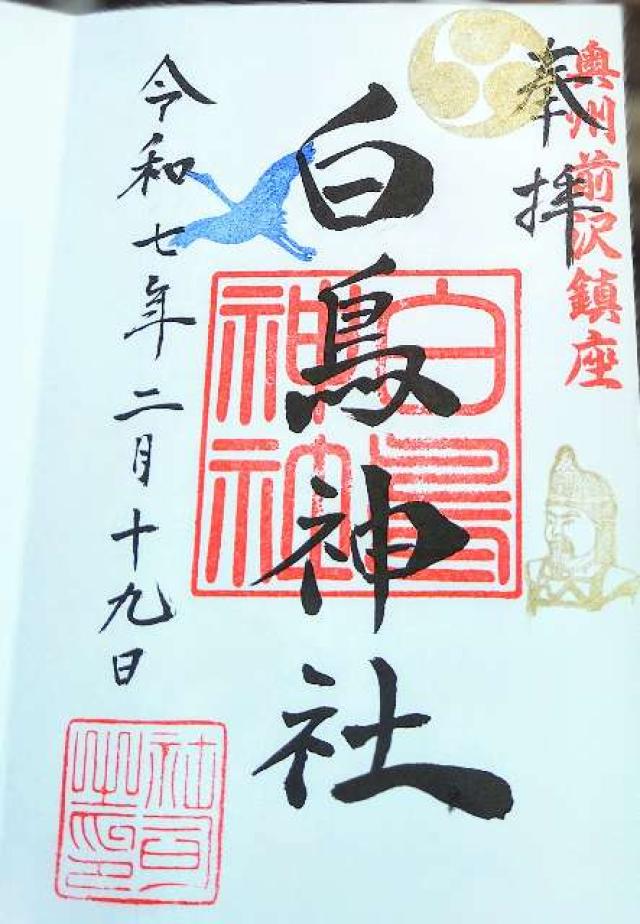 奥州前沢鎮座
奉拝
白鳥神社
白鳥神社
令和七年二月十九日
社司之印